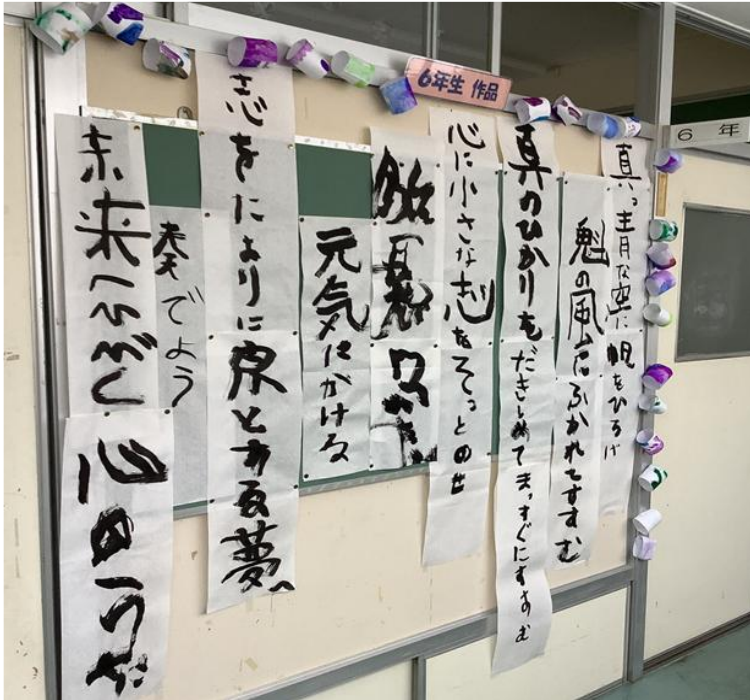 6年生 作品
6 年
真っ青な空に帆をひろげ
魁の風にふかれてすすむ
真のひかりをだきしめてまっすぐにすすむ
心に小さな志をそっとのせ
元気にかける
志をたよりに 夢へ
奏でよう
未来へひびく心のうた